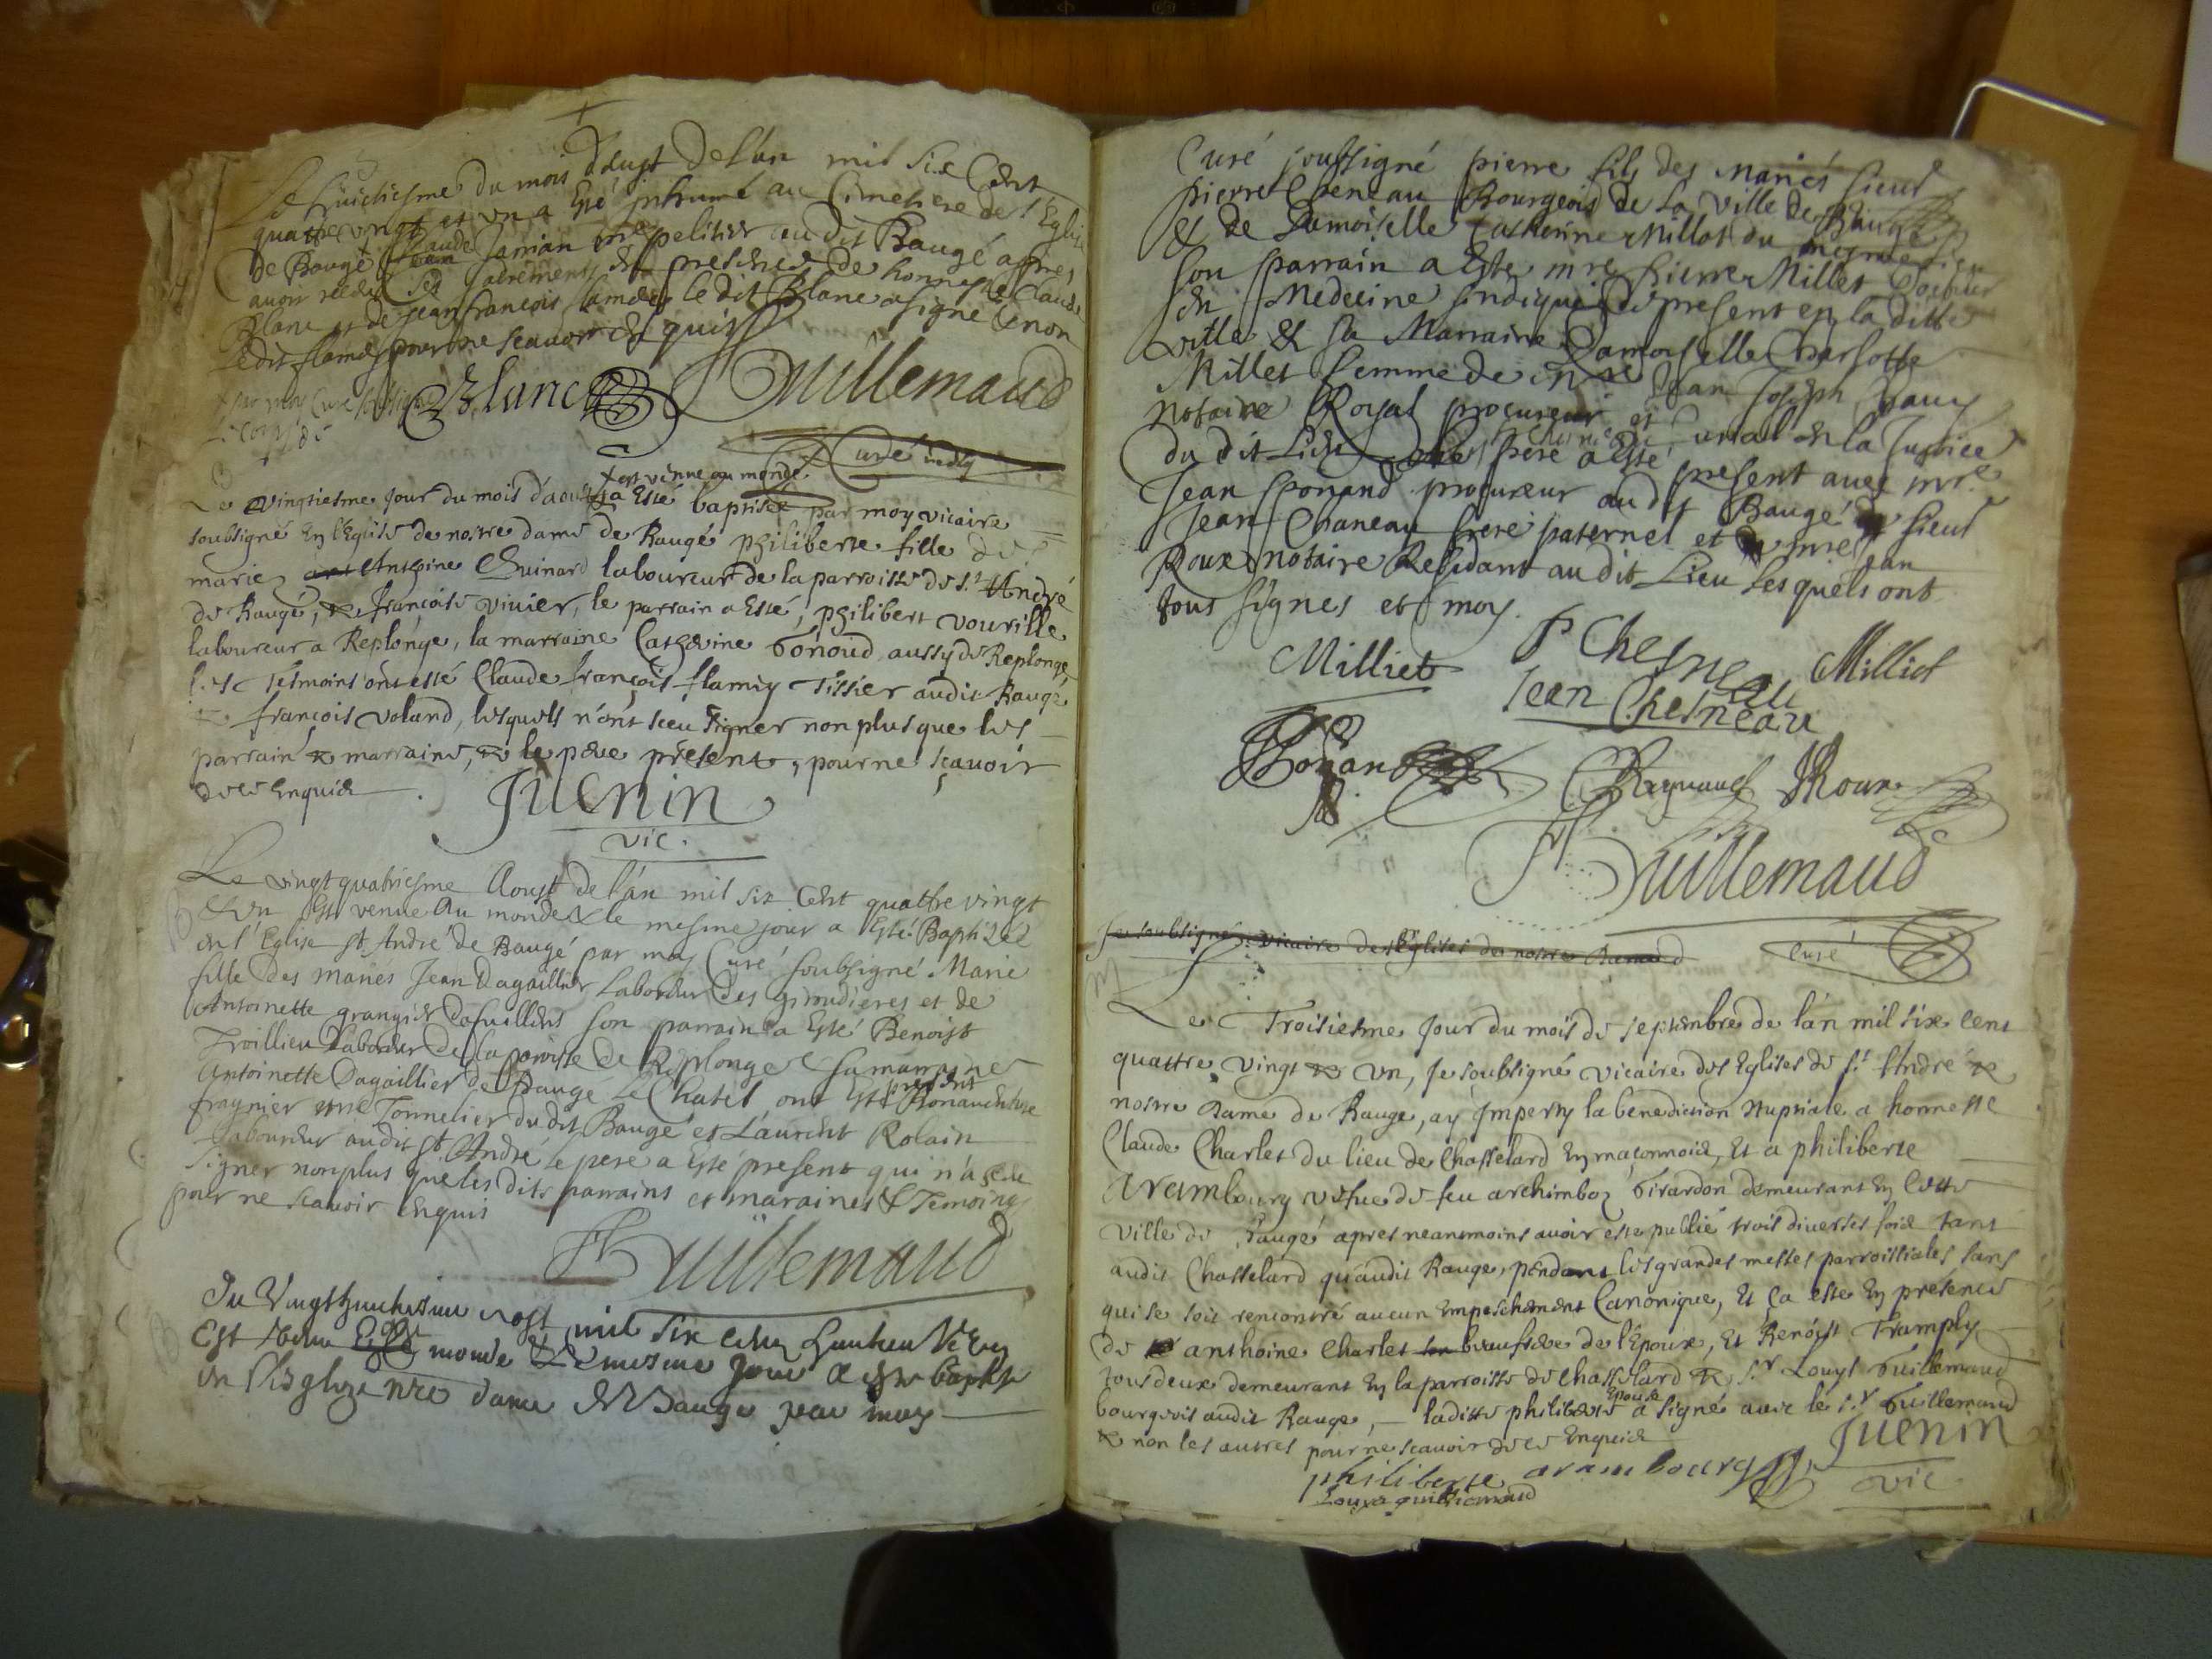 Le huictiesme du mois d'aust de l'an mil six Cent
quattre vingt et un a esté inhumé au Cimetiere de l'Eglise
de Baugé Claude Jamian mre pelitier au dit Baugé apprés
avoir receu ses sacrements en presence de honneste Claude
Blanc et de Jean francois flamey le dit Blanc a signé & non
ledit flamey pour ne scavoir enquis
par moy Curé soubsigné
Le corps de
Blanc Guillemaud
Curé
+ est venue au monde
Le vingtiesme Jour du mois d'aoust a esté baptisée par moy vicaire
soubsigné En l'Eglise de nostre dame de Baugé philiberte fille des
mariez Anthoine Guinard laboureur de la parroisse de St André
de Baugé, & françoise vivier, le parrain a esté, philibert vourille
laboureur a Replonge, la marraine Catherine Gonoud aussy de Replonge,
les tesmoins ont esté Claude françois flamiy Tissier audit Baugé
& françois voland, lesquels n'ont sceu signer non plus que les
parrain & marraine, & le pere present, pour ne sçavoir
de ce Enquis.
Juenin
vic.
Le vingt quatriesme Aoust de l'an mil six Cent quattre vingt
et un est venue Au monde & le mesme jour a esté Baptizée
en l'Eglise st André de Baugé par moy Curé soubsigné Marie
fille des mariés Jean Dagaillier Laboureur des giroudieres et de
Antoinette grangier dasvilliens son parrain a esté Benoist
Troillieu Laboureur de la paroisse de Replonge & sa marraine
Antoinette Dagaillier de Baugé Le Chatel ont esté presents Bonaventure
fragnier mre Tonnelier dudit Baugé et Laurent Rolain
Laboureur audit st André le pere a esté present qui n'a sceu
signer nonplus que les dits parrains et maraines & Temoins
pour ne scavoir enquis
Guillemaud
Du Vingt huictiesme aost mil six cens huictan & un
Est venu au monde & le mesme Jour a este baptise
en l'esglize nre dame de Bauge par moy
Curé soubsigné pierre fils des Mariés sieur
pierre Cheneau Bourgeois de la ville de Baugé
& de Damoiselle Catherine Millot du mesme lieu
son parrain a Este mre pierre Millet Docteur
En Medecine sindique de present en la ditte
ville & sa Marraine Damoiselle Charlotte
Millet femme de mre Jean Joseph
notaire Royal procureur et curial en la Justice
du dit Lieu Le pere a esté present avec mre
Jean Ponand procureur au dit Baugé sieur
Jean Chaneau frere paternel et mre Jean
Roux notaire Residant au dit Lieu lesquels ont
tous signes et moy.
Milliet P Chesneau Milliet
Jean Chesneau
Ponand Raynaud JRoux
Guillemaud
Je soubsigné vicaire des Eglises de nostre dame d
Curé
Le Troisiesme Jour du mois de septembre de l'an mil six cent
quattre vingt & un, Je soubsigné vicaire des Eglises de St André &
nostre Dame de Bauge, ay Imperty la benediction Nuptiale a honneste
Claude Charlet du lieu de Chasselard En maconnois, Et a philiberte
Arambourg vefue de feu archimboz Girardon demeurant En ceste
ville de Baugé apres neanmoins avoir esté publié trois diverses fois tant
audit Chasselard qu'audit Bauge, pendant les grandes messes parroissiales sans
qui se soit rencontré aucun Empeschement Canonique, Et ça esté En presence
de anthoine Charlet beaufrere de l'Epoux, Et Benoist Tramply
tous deux demeurant En la parroisse de Chasselard & sr Louys Guillemaud
bourgeois audit Bauge, ladite philiberte Epouse a signé avec le sr Guillemaud
& non les autres pour ne scavoir de ce Enquis
Juenin
vic
philiberte arambourg
Louys guilliemaud